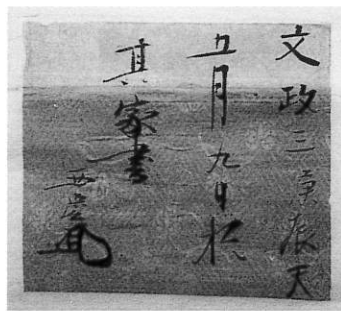 文政三庚辰天
五月九日於
其家書